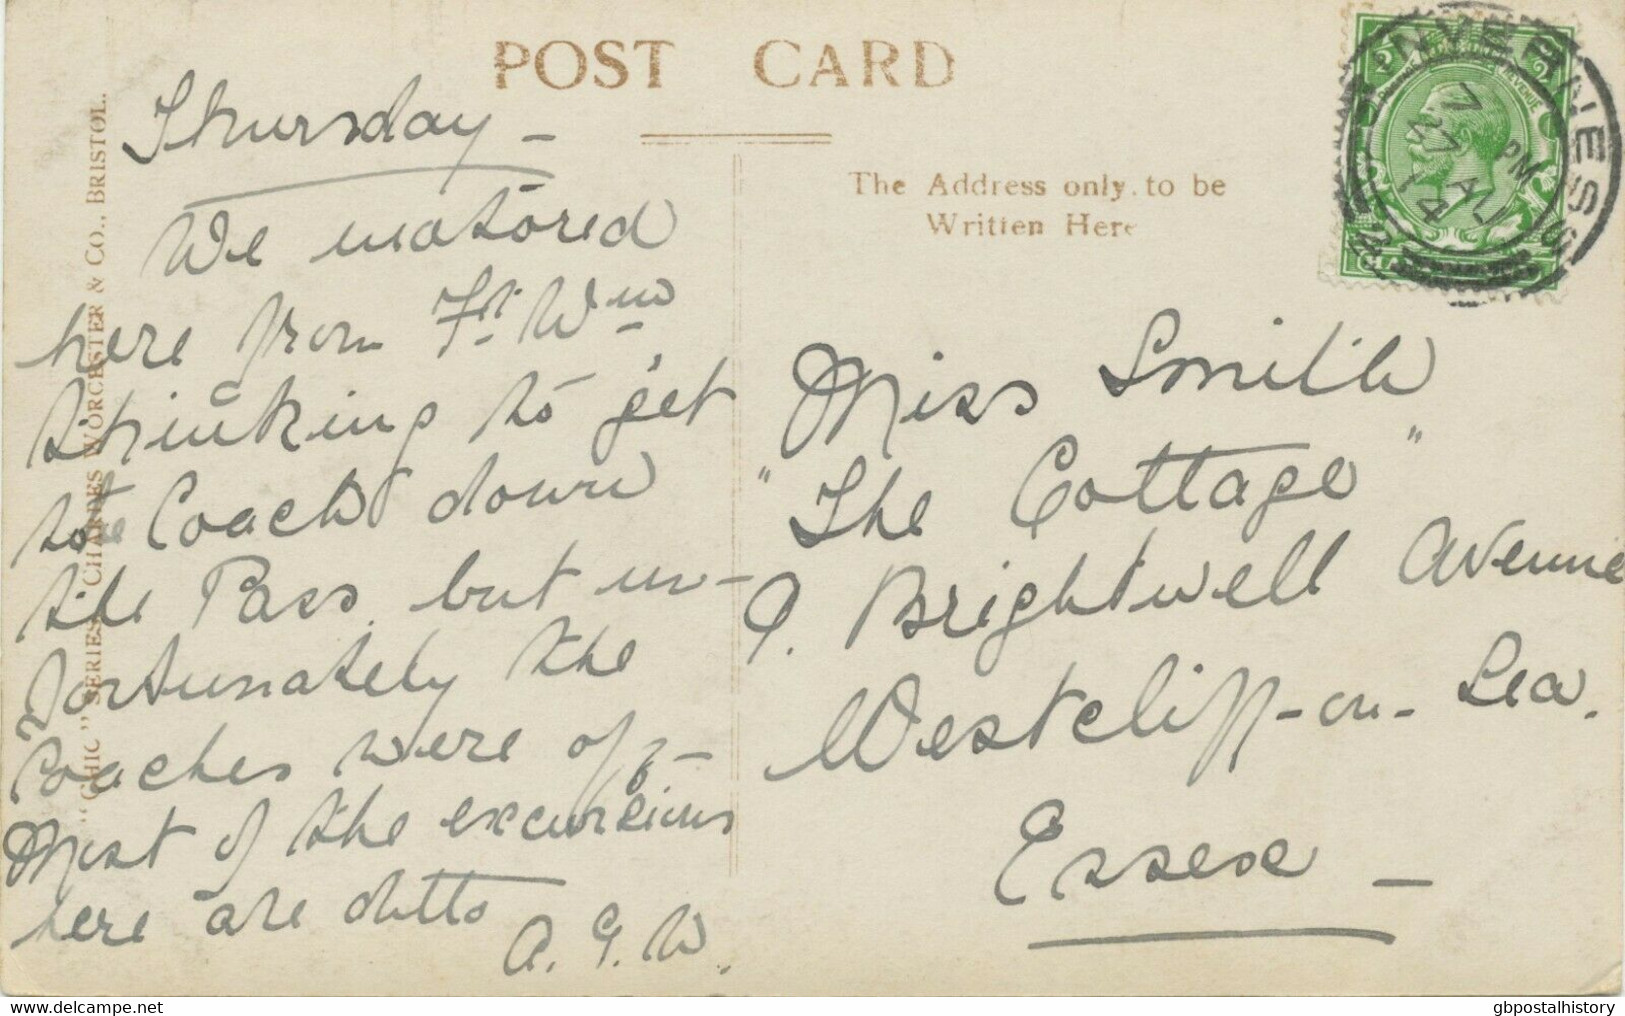 POST CARD
The Address only to be
Written Here
"CHIC" SERIES. CHARLES WORCESTER & CO., BRISTOL.
Thursday —
We motored
here from Ft. Wm
thinking to get
the Coach down
the Pass, but un-
fortunately the
Coaches were off —
Most of the excursions
here are ditto
A. G. W.
Miss Smith
"The Cottage"
9. Brightwell Avenue
Westcliff-on-Sea.
Essex —
INVERNESS
7 PM
27 AU
14
delcampe.net
gbpostalhistory